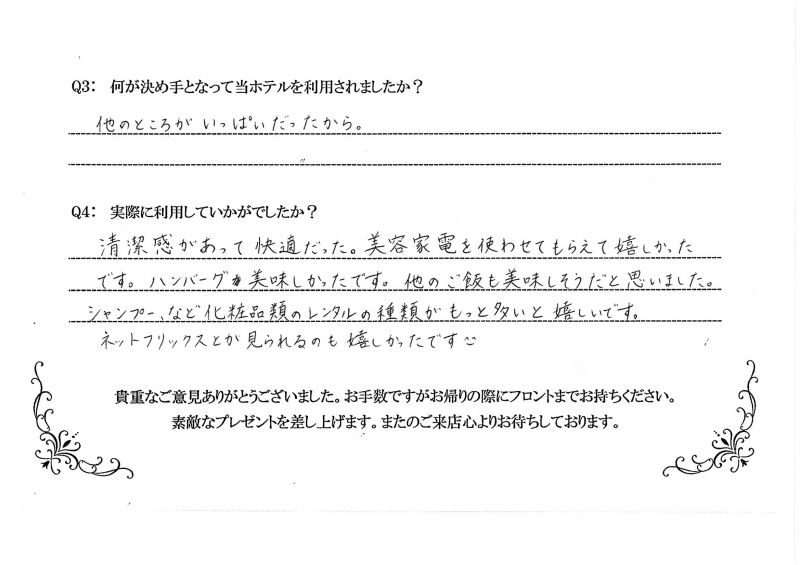 Q3: 何が決め手となって当ホテルを利用されましたか？
他のところが いっぱいだったから。
Q4: 実際に利用していかがでしたか？
清潔感があって 快適だった。美容家電を使わせてもらえて嬉しかった
です。ハンバーグ 美味しかったです。他のご飯も美味しそうだと思いました。
シャンプー、など 化粧品類のレンタルの種類が もっと多いと 嬉しいです。
ネットフリックスとか見られるのも 嬉しかったです☺
貴重なご意見ありがとうございました。お手数ですがお帰りの際にフロントまでお持ちください。
素敵なプレゼントを差し上げます。またのご来店心よりお待ちしております。